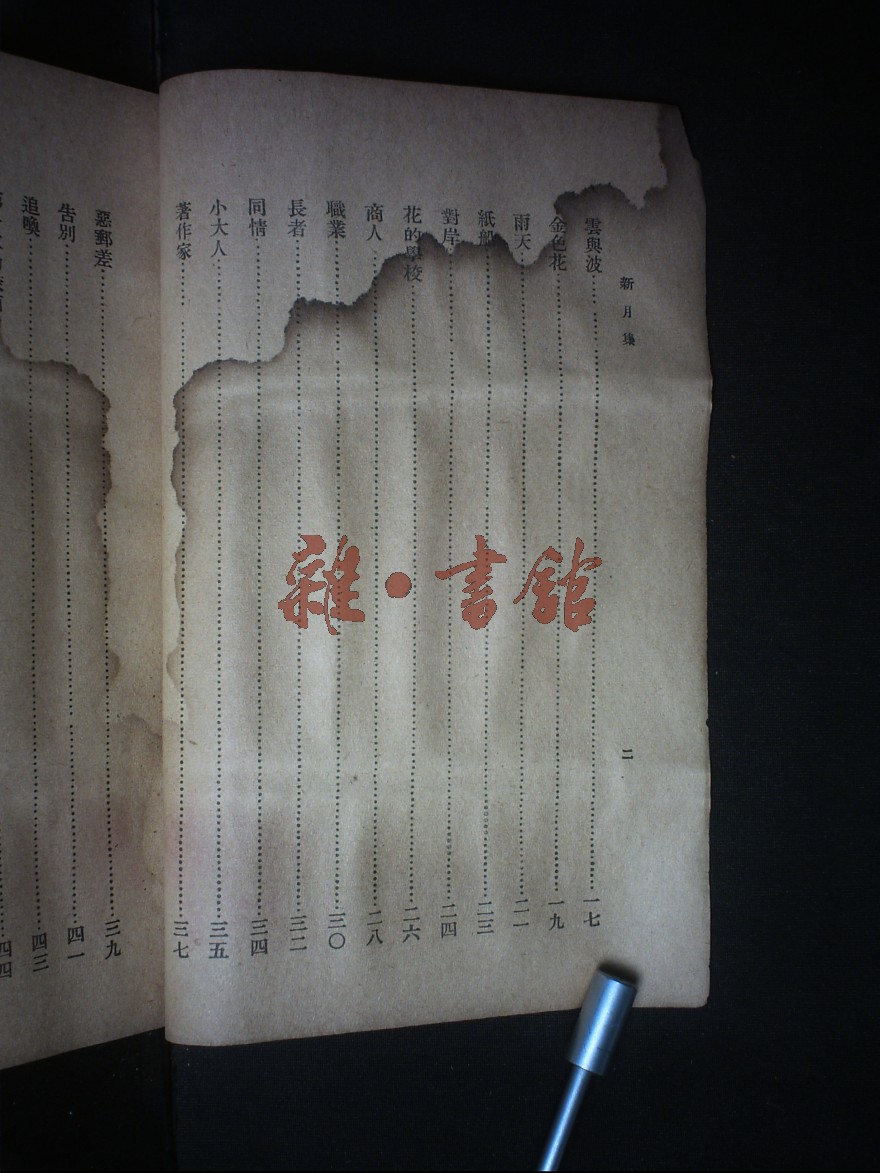 新月集
二
雲與波 一七
金色花 一九
雨天 二一
紙船 二三
對岸 二四
花的學校 二六
商人 二八
職業 三〇
長者 三二
同情 三四
小大人 三五
著作家 三七
惡郵差 三九
告別 四一
追喚 四三
四四
雜·書館